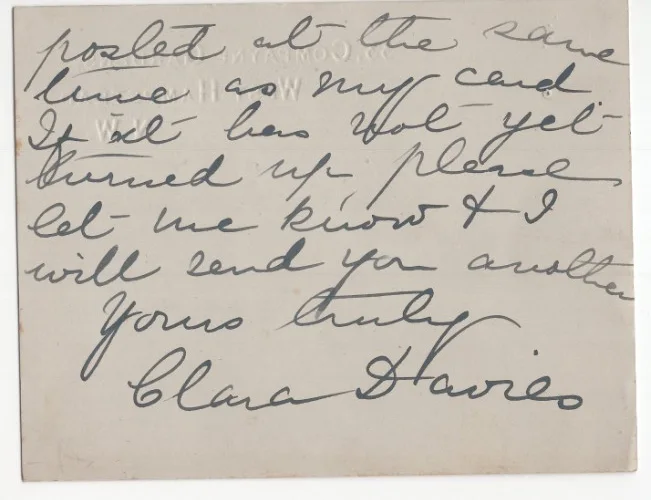 posted at the same
time as my card
If it has not yet
turned up please
let me know & I
will send you another
Yours truly
Clara Davies